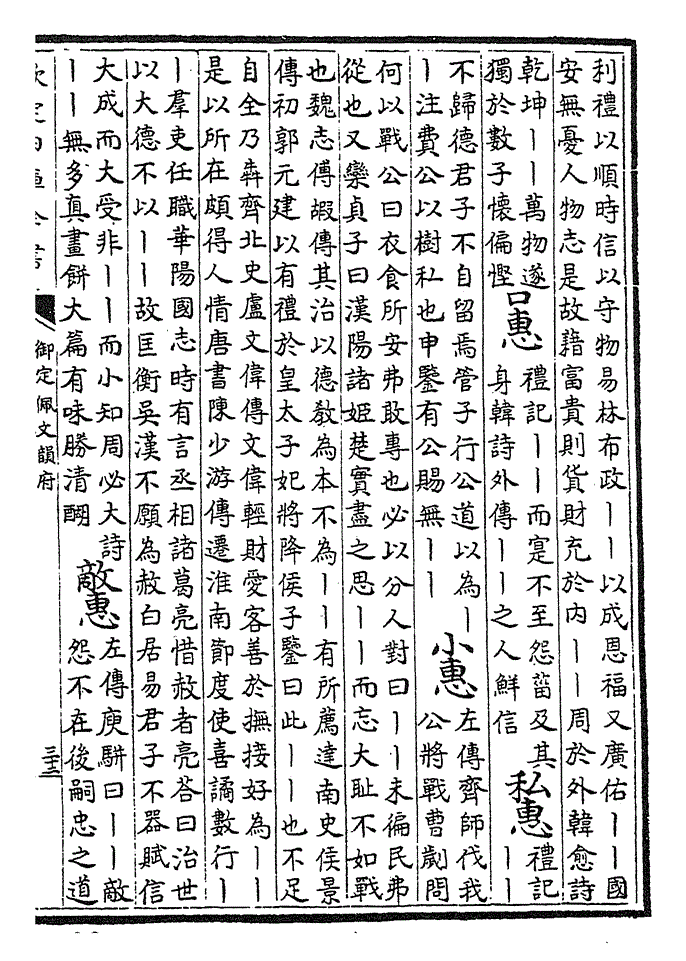 利禮以順時信以守物易林布政丨丨以成恩福又廣佑丨丨國
安無憂人物志是故藉富貴則貨財充於内丨丨周於外韓愈詩
乾坤丨丨萬物遂
獨於數子懷偏慳
口惠
禮記丨丨而寔不至怨菑及其
身韓詩外傳丨丨之人鮮信
私惠
禮記
丨丨
不歸德君子不自留焉管子行公道以為丨
丨注費公以樹私也申鑒有公賜無丨丨
小惠
左傳齊師伐我
公將戰曹劌問
何以戰公曰衣食所安弗敢專也必以分人對曰丨丨未徧民弗
從也又欒貞子曰漢陽諸姬楚實盡之思丨丨而忘大耻不如戰
也魏志傅嘏傳其治以德教為本不為丨丨有所薦達南史侯景
傳初郭元建以有禮於皇太子妃將降侯子鑒曰此丨丨也不足
自全乃犇齊北史盧文偉傳文偉輕財愛客善於撫接好為丨丨
是以所在頗得人情唐書陳少游傳遷淮南節度使喜譎數行丨
丨羣吏任職華陽國志時有言丞相諸葛亮惜赦者亮答曰治世
以大德不以丨丨故匡衡吳漢不願為赦白居易君子不器賦信
大成而大受非丨丨而小知周必大詩
丨丨無多真畫餅大篇有味勝清醐
敵惠
左傳庾駢曰丨丨敵
怨不在後嗣忠之道
欽定四庫全書
御定佩文韻府
三十三